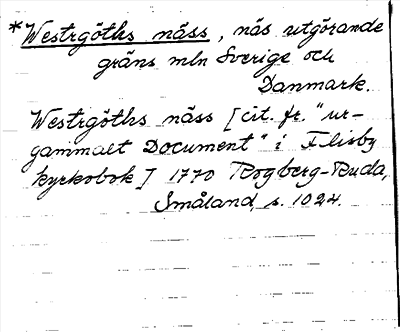 *Westrgöths näss, näs utgörande
gräns mln Sverige och
Danmark.
Westrgöths näss [cit. fr. "ur-
gammalt Document" i Flisby
kyrkobok] 1770 Rogberg-Ruda,
Småland, s. 1024.